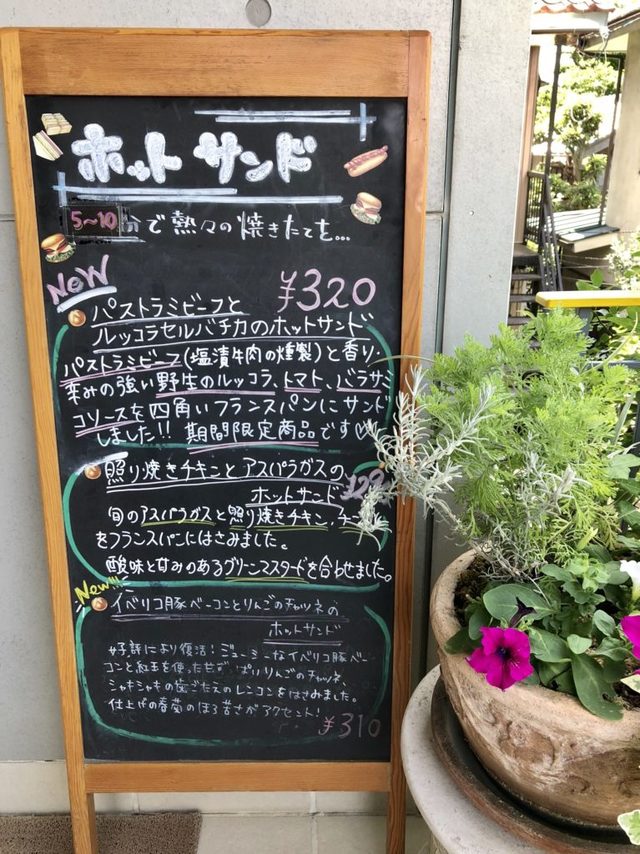 ホットサンド
5～10分で熱々の焼きたてを...
NEW
¥320
パストラミビーフと
ルッコラセルバチカのホットサンド
パストラミビーフ(塩漬牛肉の燻製)と香り・
辛みの強い野生のルッコラ、トマト、バラサミ
コソースを四角いフランスパンにサンド
しました!! 期間限定商品です♡
照り焼きチキンとアスパラガスの
ホットサンド
旬のアスパラガスと照り焼きチキン、チーズ
をフランスパンにはさみました。
酸味と甘みのあるグリーンマスタードを合わせました。
New!!!
イベリコ豚ベーコンとりんごのチャツネの
ホットサンド
好評により復活!ジューシーなイベリコ豚ベー
コンと紅玉を使った甘ずっぱいりんごのチャツネ、
シャキシャキの歯ごたえのレンコンをはさみました。
仕上げの春菊のほろ苦さがアクセント!
¥310